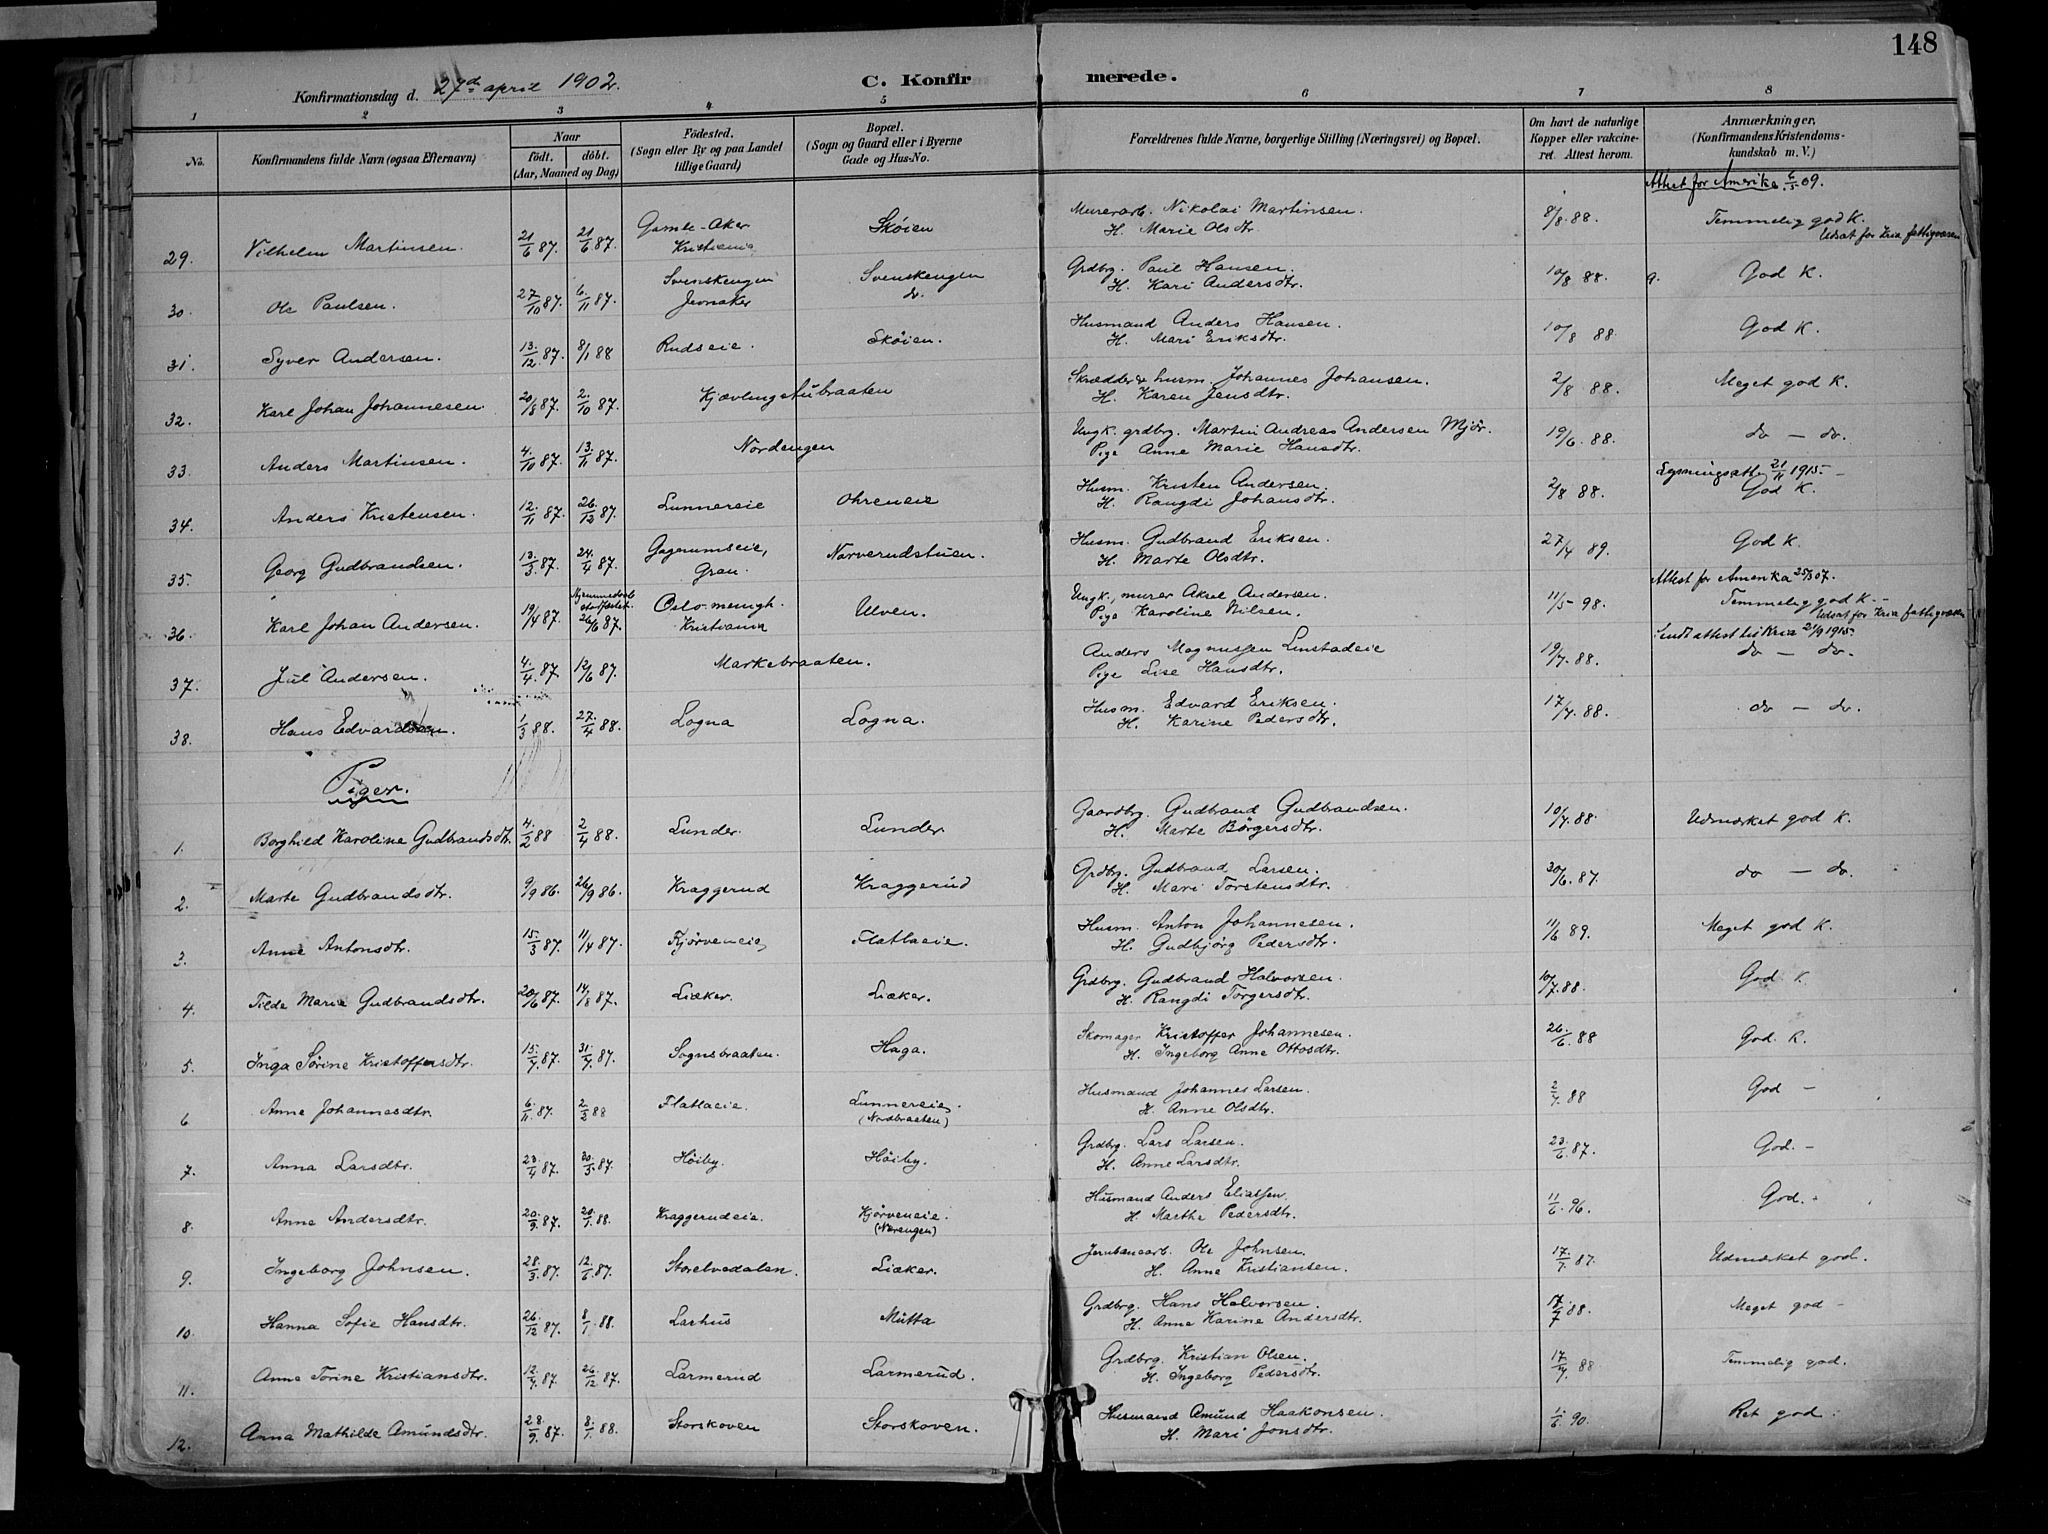 148
Konfirmationsdag d. 27de april 1902.
C. Konfirmerede.
1 2 3 4 5 6 7 8
No. Konfirmandens fulde Navn (ogsaa Efternavn) Naar födt. döbt. (Aar, Maaned og Dag) Födested. (Sogn eller By og paa Landet tillige Gaard) Bopæl. (Sogn og Gaard eller i Byerne Gade og Hus-No. Forældrenes fulde Navne, borgerlige Stilling (Næringsvei) og Bopæl. Om havt de naturlige Kopper eller vakcineret. Attest herom. Anmærkninger. (Konfirmandens Kristendomskundskab m. V.)
Attest for Amerika 6/5 09.
29. Vilhelm Martinsen. 21/6 87. 21/6 87. Gamle-Aker Kristiania Skøien Murerarb. Nikolai Martinsen. H. Marie Olsdtr. 8/8. 88. Temmelig god K. Udsat for Kria fattigvæsen
30. Ole Paulsen. 27/10 87. 6/11 87. Svenskengen Jevnaker Svenskengen do. Grdbrg. Paul Hansen. H. Kari Andersdtr. 10/8 88. g. God K.
31. Syver Andersen. 13/12 87. 8/1 88 Rudseie. Skøien. Husmand Anders Hansen. H. Mari Eriksdtr. 10/8 88. God K.
32. Karl Johan Johannesen. 20/8 87. 2/10 87. Kjævlingstubraaten Skrædder & husm. Johannes Johansen. H. Karen Jensdtr. 2/8 88. Meget god K.
33. Anders Martinsen. 4/10 87. 13/11 87. Nordengen Ungk. grdbrg. Martin Andreas Andersen Mjør. Pige Anne Marie Hansdtr. 19/6. 88. do — do.
Lysningsatt. 21/11 1915
34. Anders Kristensen. 12/11 87. 26/12 87. Lunnereie Ohreneie Husm. Kristen Andersen. H. Rangdi Johansdtr. 2/8 88. God K.
35. Georg Gudbrandsen. 13/3 87. 24/4 87. Gagerumseie, Gran. Narverudstuen. Husm. Gudbrand Eriksen. H. Marte Olsdtr. 27/4 89. God K.
Attest for Amerika 25/3 07.
36. Karl Johan Andersen. 19/4 87. Hjemmedøbt stadfæstet. 26/6 87. Oslo menigh. Kristiania Ulven. Ungk., murer Aksel Andersen. Pige Karoline Nilsen. 11/5 98. Temmelig god K. Udsat for Kria fattigvæsen
Sendt attest til Kria 21/9 1915.
37. Jul Andersen. 4/4 87 12/6 87. Markebraaten. Anders Magnussen Linstadeie Pige Lise Hansdtr. 19/7. 88. do — do.
38. Hans Edvardsen. 1/3 88. 27/4 88. Logna Logna. Husm. Edvard Eriksen. H. Karine Pedersdtr. 17/7. 88. do — do.
Piger.
1. Borghild Karoline Gudbrandsdtr. 4/2 88 2/4 88. Lunder. Lunder Gaardbrg. Gudbrand Gudbrandsen. H. Marte Börgersdtr. 10/7. 88. Udmærket god K.
2. Marte Gudbrandsdtr. 9/9 86. 26/9 86. Kraggerud Kraggerud Grdbrg. Gudbrand Larsen. H. Mari Torstensdtr. 30/6. 87. do — do.
3. Anne Antonsdtr. 15/3 87. 11/4 87. Kjørveneie Flatlaeie. Husm. Anton Johannesen. H. Gudbjørg Pedersdtr. 11/6 89. Meget god K.
4. Tilde Marie Gudbrandsdtr. 20/6 87. 14/8 87. Liæker. Liæker. Grdbrg. Gudbrand Halvorsen. H. Rangdi Torgersdtr. 10/7. 88. God K.
5. Inga Sørine Kristoffersdtr. 15/7 87. 31/7 87. Sognsbraaten. Haga. Skomager Kristoffer Johannesen. H. Ingeborg Anne Ottosdtr. 26/6. 88 God. K.
6. Anne Johannesdtr. 6/11 87. 2/2 88 Flatlaeie. Lunnereie. (Nordbraaten) Husmand Johannes Larsen. H. Anne Olsdtr. 2/7. 88 God —
7. Anna Larsdtr. 23/4 87. 30/5 87. Höiby. Höiby. Grdbrg. Lars Larsen. H. Anne Larsdtr. 23/6. 87. God. —
8. Anne Andersdtr. 20/9. 87. 20/1. 88. Kraggerudeie. Kjörveneie. (Narengen) Husmand Anders Eliassen. H. Marthe Pedersdtr. 11/6. 96. God. -
9. Ingeborg Johnsen. 28/3 87. 12/6 87. Storelvedalen. Liæker. Jernbanearb. Ole Johnsen. H. Anne Kristiansen. 17/7. 87. Udmærket god.
10. Hanna Sofie Hansdtr. 26/12 87. 8/1. 88. Larhus Mutta Grdbrg. Hans Halvorsen. H. Anne Karine Andersdtr. 17/7 88. Meget god —
11. Anne Torine Kristiansdtr. 12/7. 87 26/12 87. Larmerud Larmerud. Grdbrg. Kristian Olsen. H. Ingeborg Pedersdtr. 17/7. 88 Temmelig god.
12. Anna Mathilde Amundsdtr. 28/9. 87. 8/1. 88. Storskoven Storskoven. Husmand Amund Haakonsen. H. Mari Jonsdtr. 1/6. 90. Ret god.